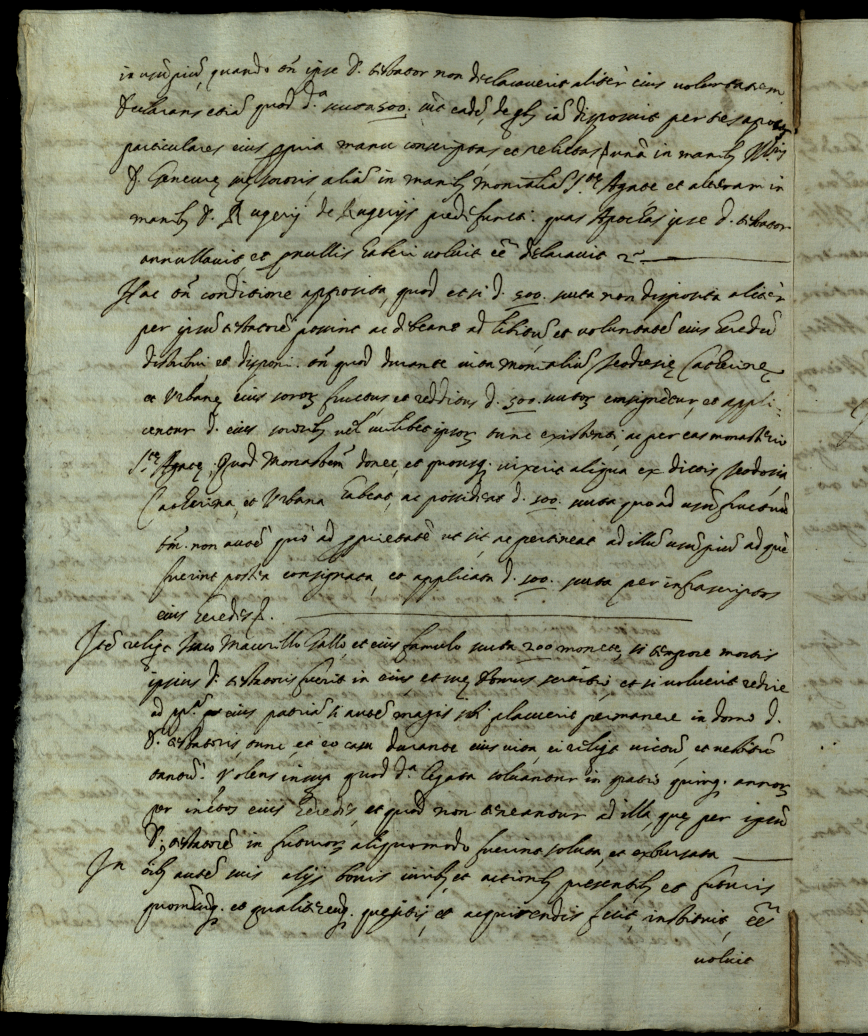 in usu piu, quando tn ipse d. testator non declaraverit aliter eius voluntatem
declarans etia quod d.a scuta 500. ut cade, de qb ia disposuit per tes apocas
particulares eius ppria manu conscriptas et relictas, una in manib
d. Genevre sue sororis, alia in manib monialiu S.te Agate et alteram in
manib d. Rugerij de Rugerijs predefuncti. quas Apocas ipse d. testator
annullavit, et p nullis haberi voluit et declaravit
Hac tn conditione apposita, quod et si d. 500. scuta non disposita aliter
per ipsu testatore possint ac debeant ad libitu et voluntate eius heredu
distribui et disponi. tn quod durante vita monialiu Teodosie Catherine
et Urbane eius soror fructus et redditus d. 500. scutor consignetur, et appli-
centur d. eius sororib vel cuilibet ipsor tunc existenti, ac per eas monasterio
S.te Agate, Quod Monasteriu donec, et quousq. vixerit aliqua ex dictis Teodosia
Catherina, et Urbana habeat, ac possideat d. 500. scuta quo ad usufructu
tm. non aute quo ad pprietate ut sit, ac pertineat ad illu usu piu ad que
fuerint postea consignata, et applicata d. 500. scuta per infrascriptos
eius heredes.
Ite reliqt Maurillo Gallo, et eius famulo scuta 200 monete, si tempore mortis
ipsius d. testatoris fuerit in eius et sue domus servitio, et si voluerit redire
ad eius patria si aute magis sibi placuerit permanere in domo d.
d. testatoris, tunc et eo casu durante eius vita, ei reliqt victu, et vestitu
tantu. Volens insup quod d.a legata solvantur in spatio quinq. annor
per infctos eius heredes, et quod non teneantur ad illa, que per ipsu
d. testatore in futuru aliquomodo fuerint soluta, et exbursata
In oib aute suis alijs bonis iurib et actionib presentib et futuris
quomcuq. et qualitercuq. quesitis, et acquirendis fecit, instituit, et
voluit